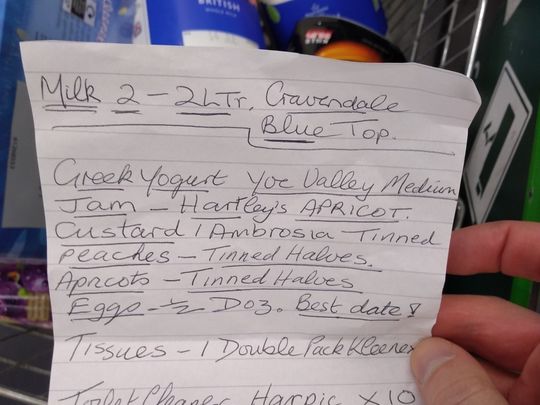 BRITISH
Milk 2 - 2LTr. Cravendale
Blue Top.
Greek Yogurt Yoe Valley Medium
Jam - Hartley's APRICOT.
Custard 1 Ambrosia Tinned
Peaches - Tinned Halves.
Apricots - Tinned Halves
Eggs - ½ Doz. Best date!
Tissues - 1 Double Pack Kleenex
Harpic X10